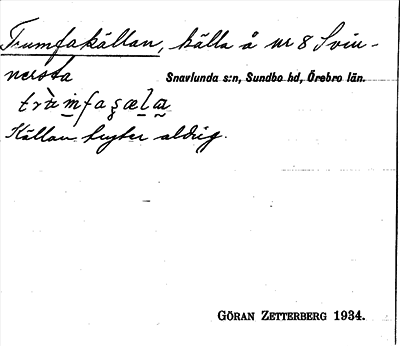 Trumfakällan, källa å nr 8 Svin-
nersta Snavlunda s:n, Sundbo hd, Örebro län.
Källan tryter aldrig.
GÖRAN ZETTERBERG 1934.